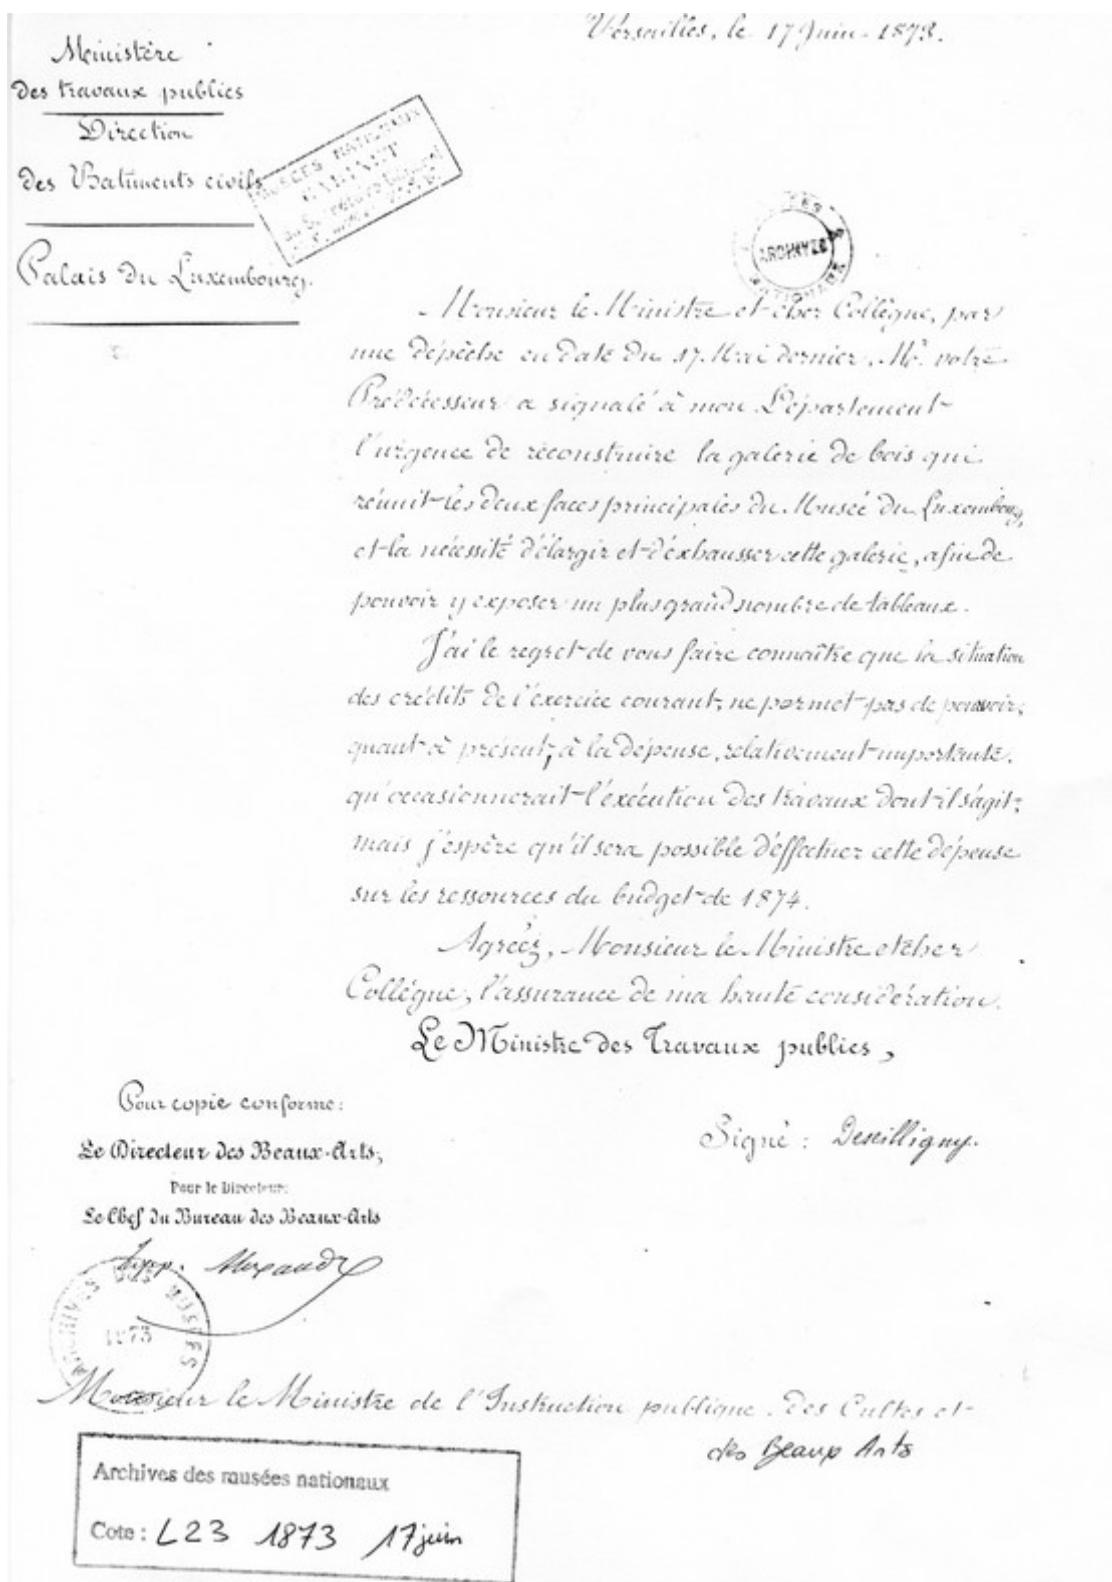 Versailles, le 17 Juin 1873.
Ministère
des travaux publics
Direction
des Batiments civils
Palais du Luxembourg.
MUSÉES NATIONAUX
CABINET
ARCHIVES
NATIONAUX
Monsieur le Ministre et cher Collègue, par
une dépêche en date du 17 Mai dernier, Mr. votre
Prédécesseur a signalé à mon Département
l'urgence de reconstruire la galerie de bois qui
réunit les deux faces principales du Musée du Luxembourg,
et la nécessité d'élargir et d'exhausser cette galerie, afin de
pouvoir y exposer un plus grand nombre de tableaux.
J'ai le regret de vous faire connaître que la situation
des crédits de l'exercice courant, ne permet pas de pouvoir,
quant à présent, à la dépense, relativement importante,
qu'occasionnerait l'exécution des travaux dont il s'agit;
mais j'espère qu'il sera possible d'effectuer cette dépense
sur les ressources du budget de 1874.
Agréez, Monsieur le Ministre et cher
Collégue, l'assurance de ma haute considération.
Le Ministre des Travaux publics,
Pour copie conforme:
Signé: Deseilligny.
Le Directeur des Beaux-Arts,
Pour le Directeur:
Le Chef du Bureau des Beaux-Arts
ARCHIVES DES MUSÉES
1873
Monsieur le Ministre de l'Instruction publique, des Cultes et
des Beaux Arts
Archives des musées nationaux
Cote: L23 1873 17 juin